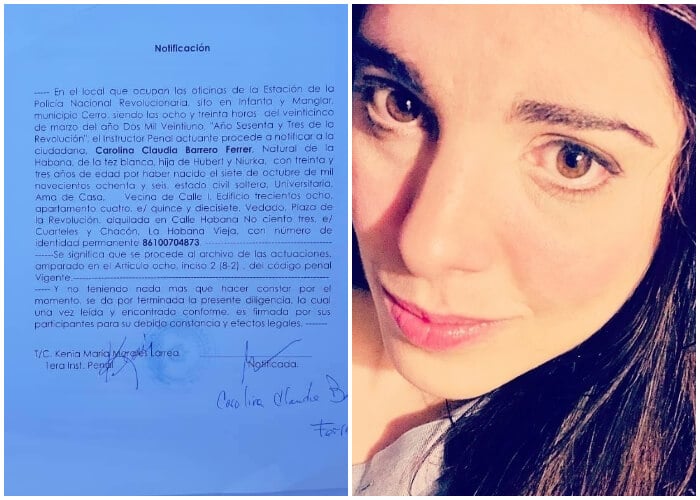 Notificación
----- En el local que ocupan las oficinas de la Estación de la
Policía Nacional Revolucionaria, sito en Infanta y Manglar,
municipio Cerro, siendo las ocho y treinta horas del veinticinco
de marzo del año Dos Mil Veintiuno. "Año Sesenta y Tres de la
Revolución", el Instructor Penal actuante procede a notificar a la
ciudadana, Carolina Claudia Barrero Ferrer, Natural de la
Habana, de la tez blanca, hija de Hubert y Niurka, con treinta y
tres años de edad por haber nacido el siete de octubre de mil
novecientos ochenta y seis, estado civil soltera, Universitaria,
Ama de Casa, Vecina de Calle I, Edificio trecientos ocho,
apartamento cuatro, e/ quince y diecisiete, Vedado, Plaza de
la Revolución, alquilada en Calle Habana No ciento tres, e/
Cuarteles y Chacón, La Habana Vieja, con número de
identidad permanente 86100704873. --------------------
-----Se significa que se procede al archivo de las actuaciones,
amparado en el Artículo ocho, inciso 2 (8-2) , del código penal
Vigente.--------------------
----- Y no teniendo nada mas que hacer constar por el
momento, se da por terminada la presente diligencia, la cual
una vez leída y encontrada conforme, es firmada por sus
participantes para su debida constancia y efectos legales. -------
T/C. Kenia María Morales Larrea
1era Inst. Penal
Notificada.
Carolina Claudia B